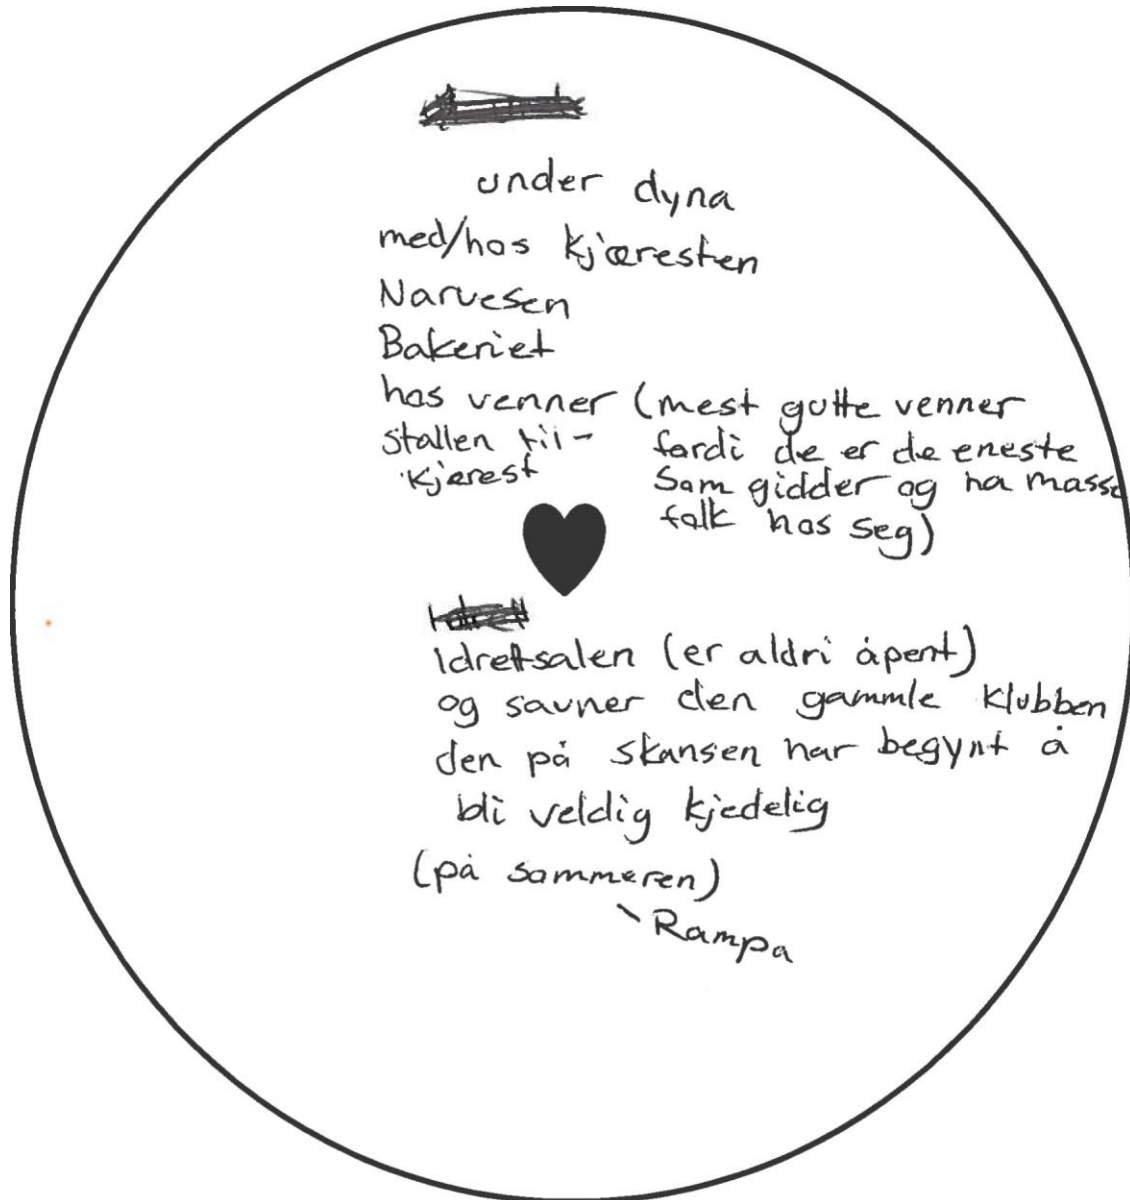 under dyna
med/hos kjæresten
Narvesen
Bakeriet
hos venner (mest gutte venner
fordi de er de eneste
som gidder og ha masse
folk hos seg)
stallen til-
kjærest
Idrettsalen (er aldri åpent)
og savner den gammle klubben
den på skansen har begynt å
bli veldig kjedelig
(på sommeren)
- Rampa